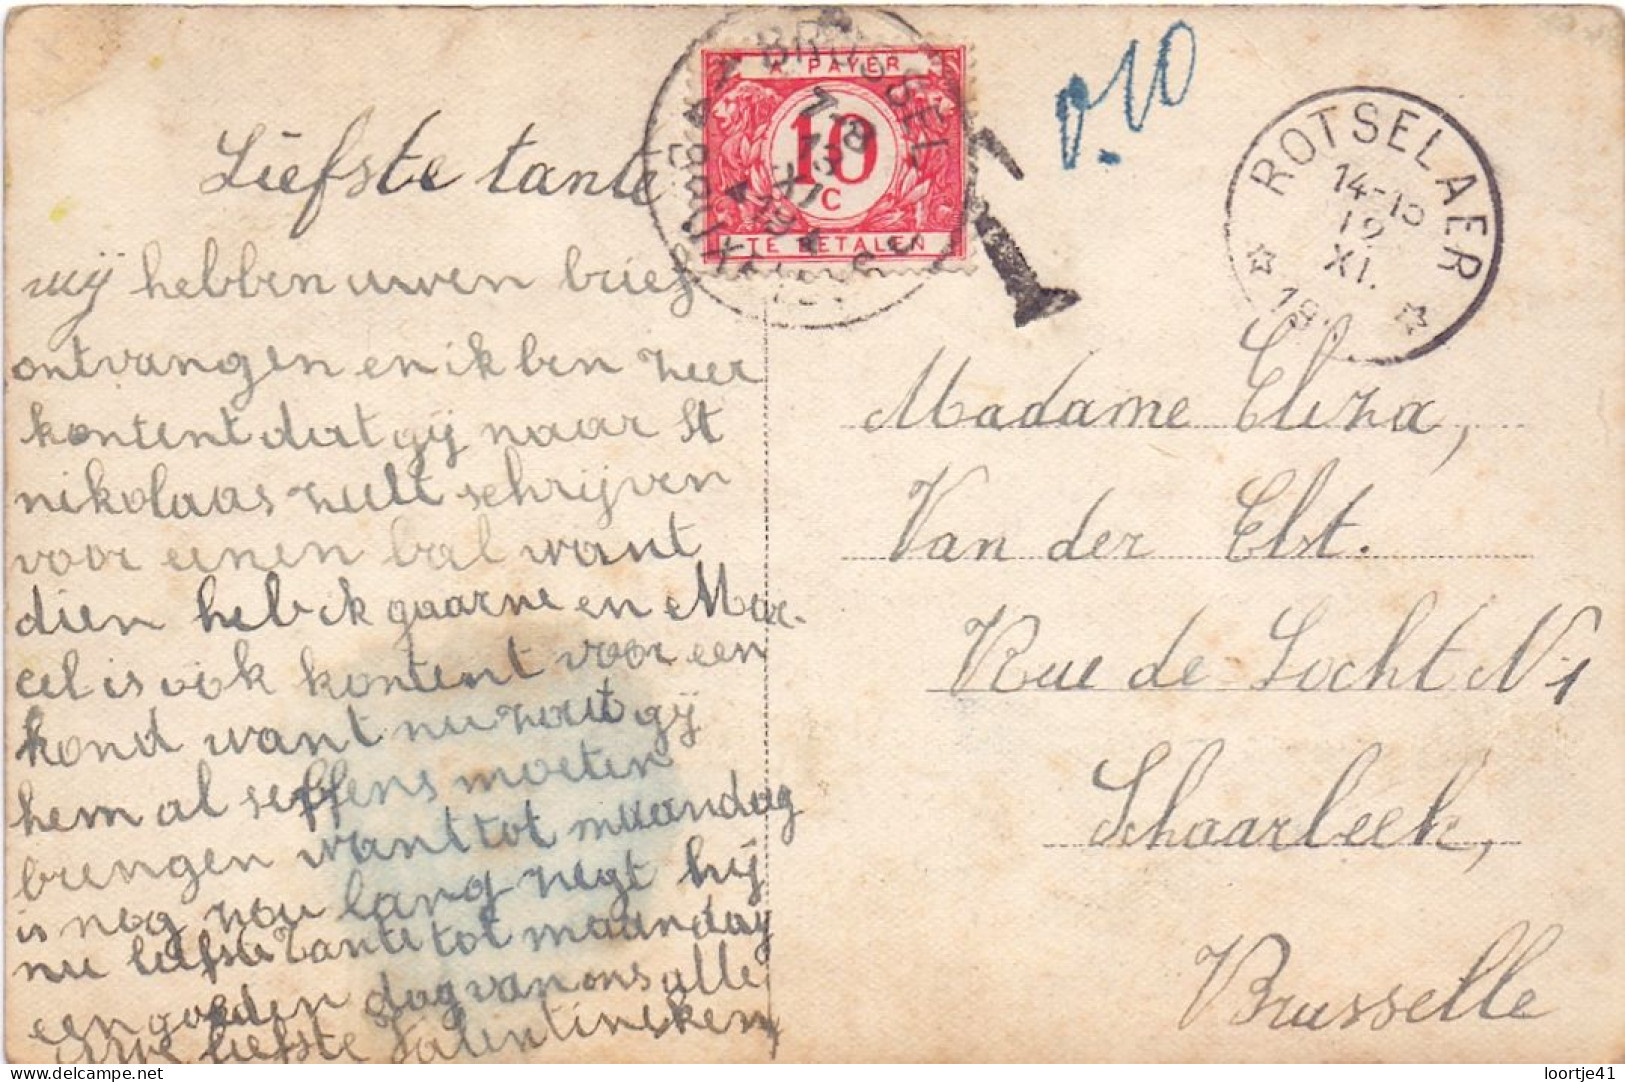 Liefste tante
wij hebben uwen brief
ontvangen en ik ben zeer
kontent dat gij naar St
nikolaas zult schrijven
voor eenen bal want
dien heb ik gaarne en Mar-
cel is ook kontent voor een
kond want nu zout gij
hem al seffens moeten
brengen want tot maandag
is nog zou lang zegt hij
nu liefste tante tot maandag
een goeden dag van ons alle
uwe liefste Valentineken
A PAYER
10
C
TE BETALEN
BRUSSEL
7-8
13
XI
19
T
P. 10
ROTSELAER
14-15
12
XI.
19
Madame Eliza,
Van der Elst.
Rue de Locht N 1
Schaarbeek,
Brusselle
loortje41